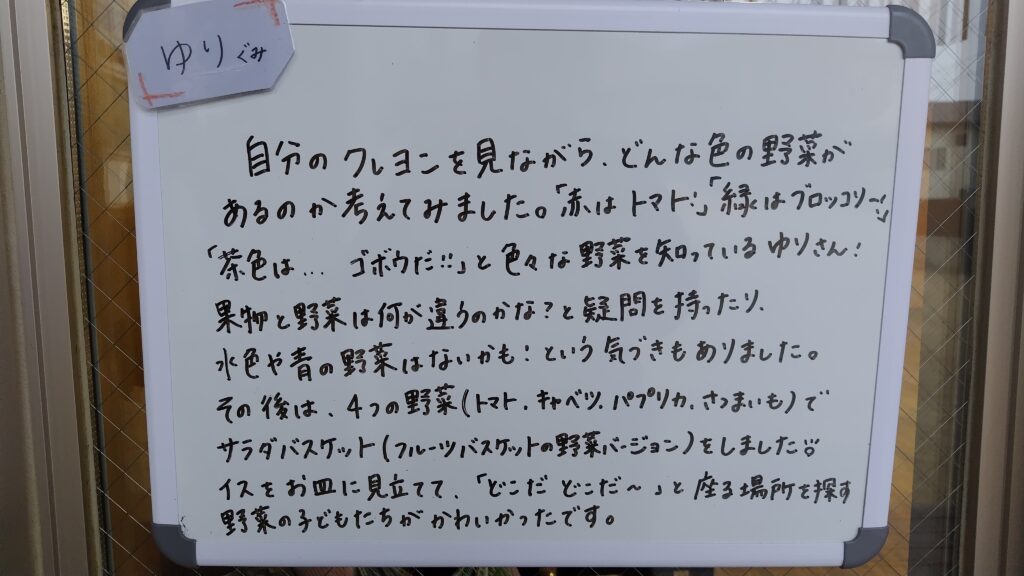 ゆり ぐみ
自分の クレヨンを見ながら、どんな色の野菜が
あるのか 考えてみました。「赤は トマト!」「緑はブロッコリー!」
「茶色は… ゴボウだ!!」と 色々な 野菜を知っている ゆりさん!
果物と野菜は何が違うのかな?と 疑問を 持ったり、
水色や青の野菜はないかも!という 気づきもありました。
その後は、4つの野菜(トマト、キャベツ、パプリカ、さつまいも)で
サラダバスケット(フルーツバスケットの野菜バージョン)をしました。
イスをお皿に見立てて、「どこだ どこだ～」と 座る場所を探す
野菜の子どもたちが かわいかったです。